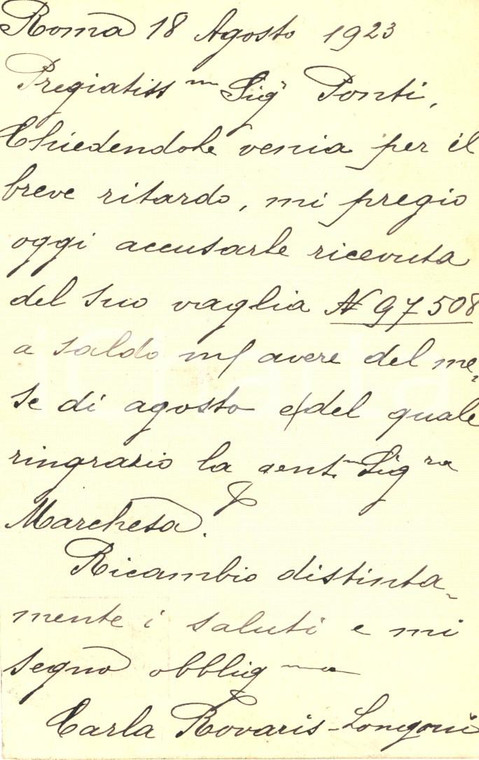 Roma 18 Agosto 1923
Pregiatiss mo Sigr Ponti,
Chiedendole venia per il
breve ritardo, mi pregio
oggi accusarle ricevuta
del suo vaglia N 97508
a saldo m/ avere del me=
se di agosto e/del quale
ringrazio la gent. Sig ra
Marchesa.
Ricambio distinta=
mente i saluti e mi
segno obblig ma
Carla Rovaris-Longoni